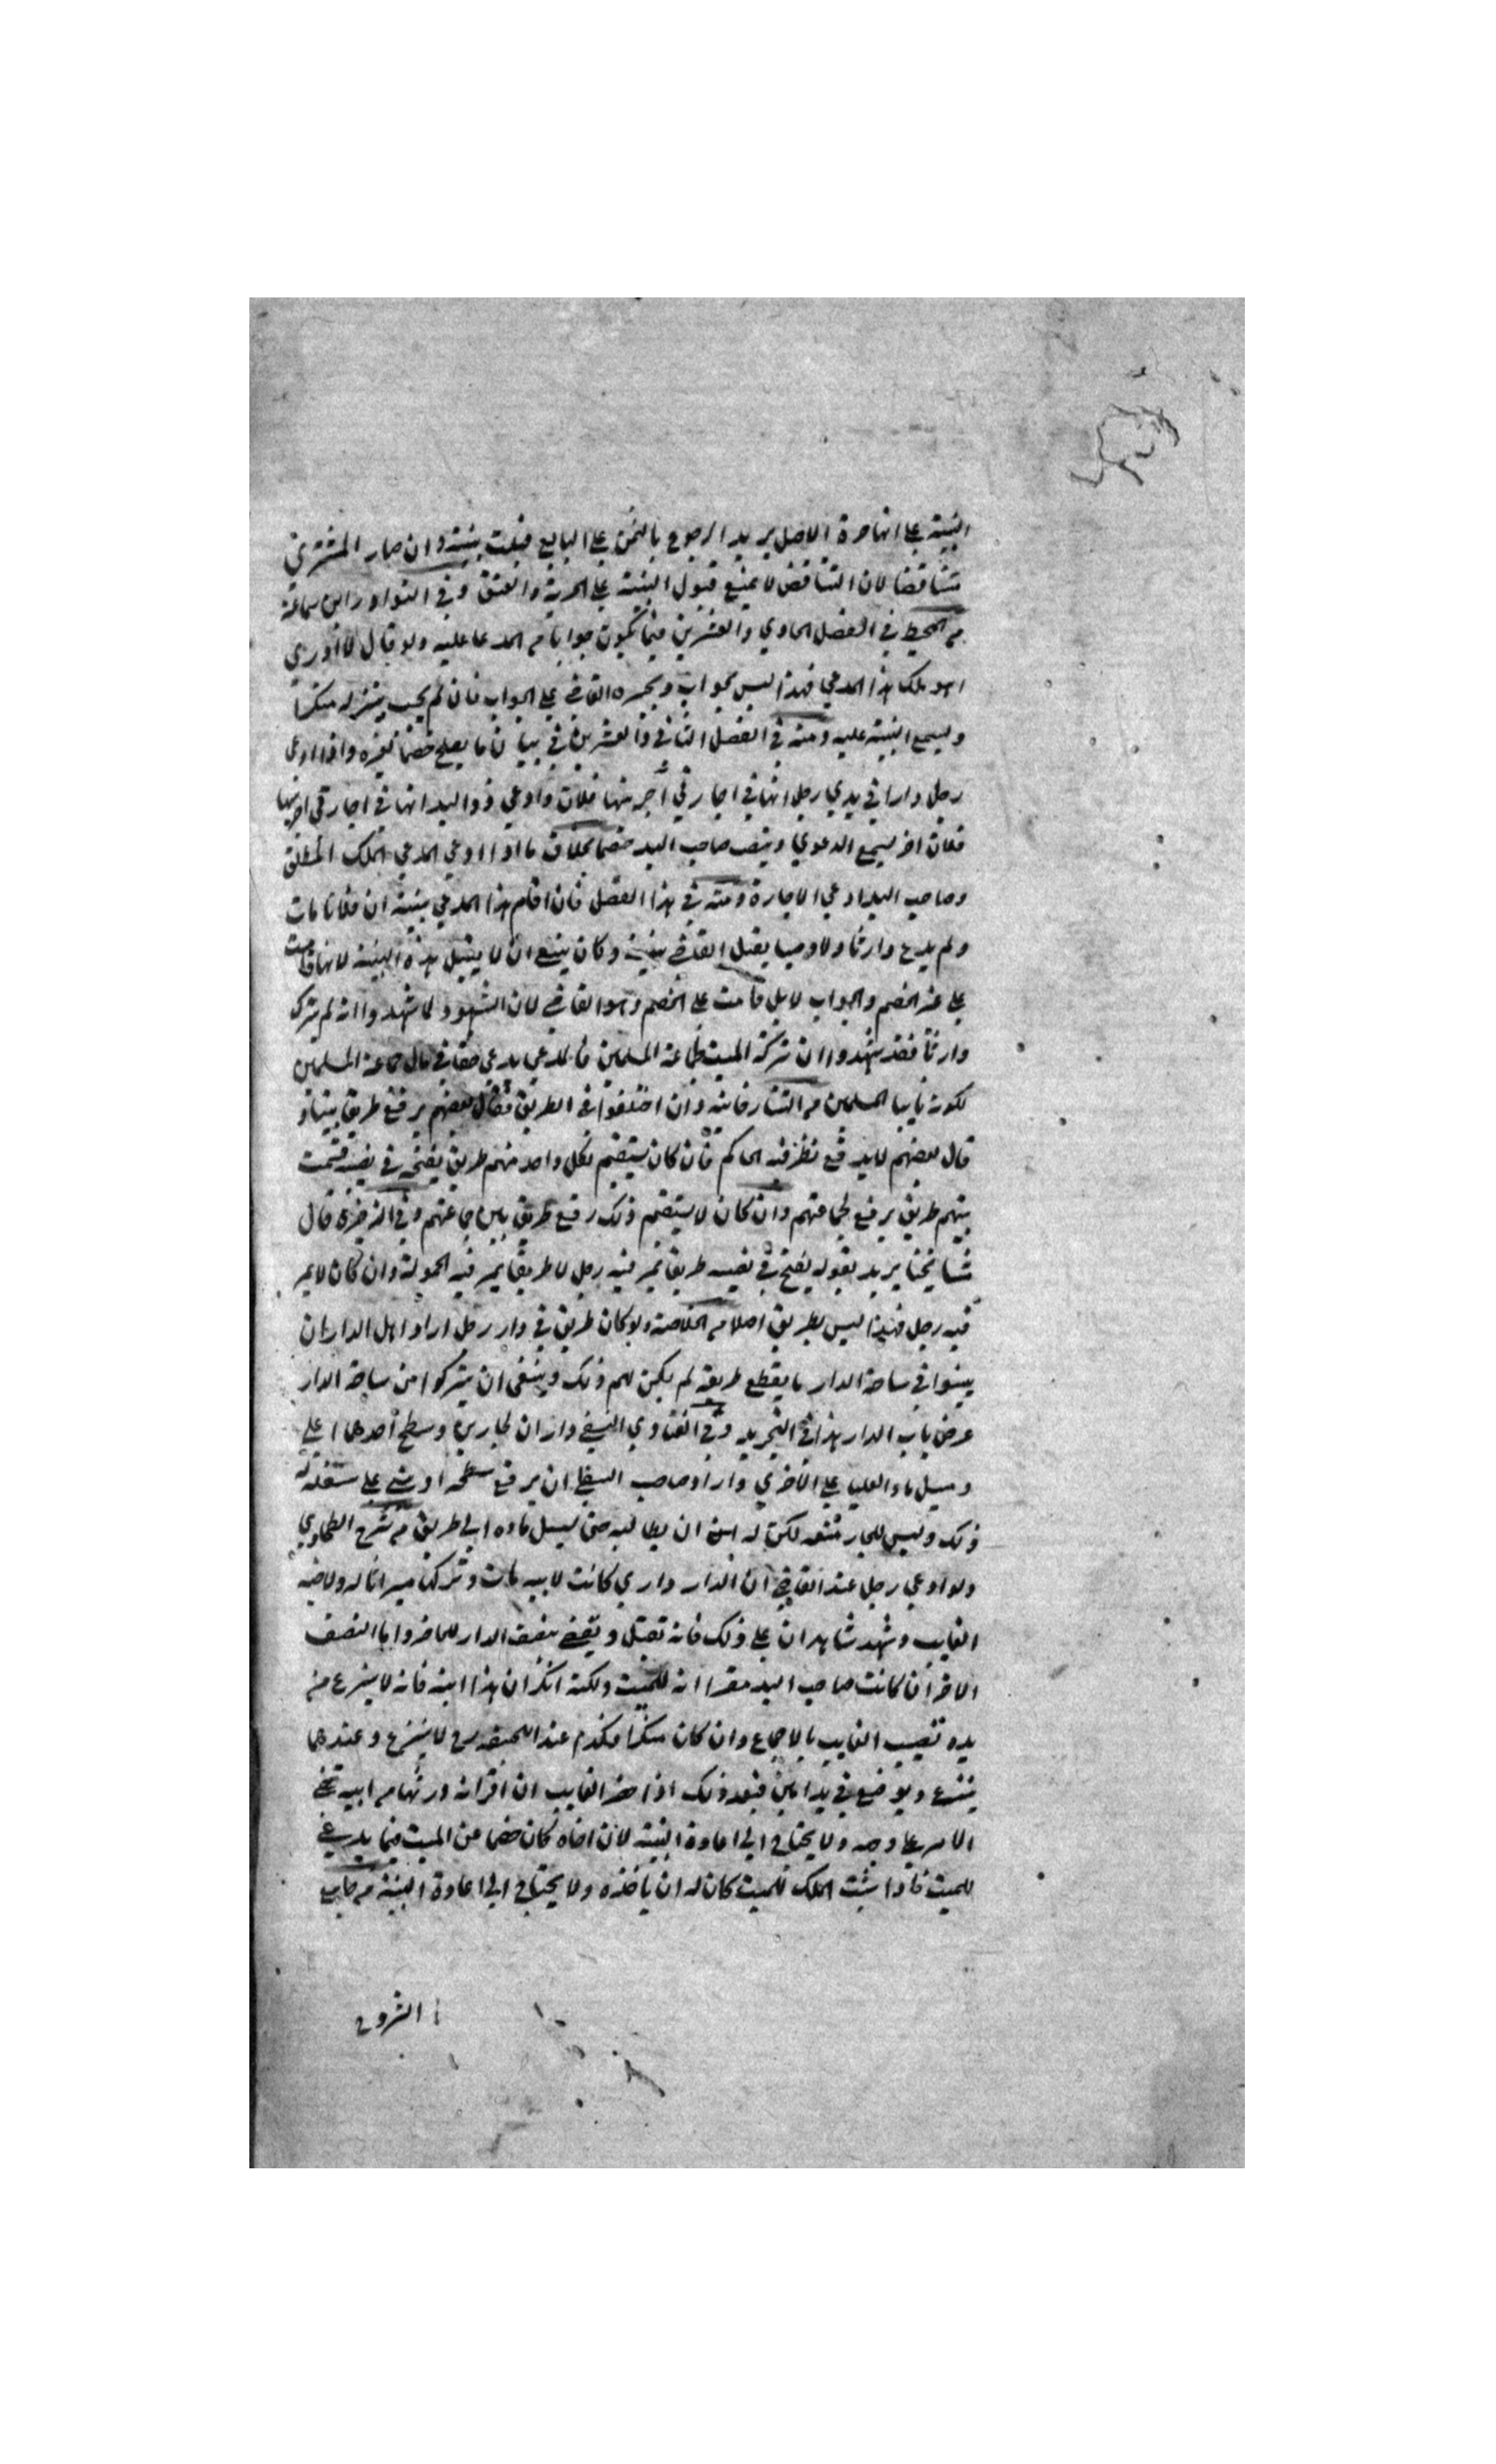 البينة على انها حرة الاصل يريد الرجوع بالثمن على البايع قبلت بينته وان صار المشتري
متناقضا لان التناقض لا يمنع قبول البينة على الحرية والعتق وفي النوادر ابن سماعة
من المحيط في الفصل الحادي والعشرين فيما يكون جوابا من المدعا عليه ولو قال لا ادري
اهو ملك هذا المدعي فهذا ليس بجواب ويجبره القاضي على الجواب فان لم يجب ينزله منكرا
ويسمع البينة عليه ومنه في الفصل الثاني والعشرين في بيان ما يصلح خصما لغيره واذا ادعى
رجل دارا في يدي رجل انها في اجارتي آجرنيها فلان وادعي ذو اليد انها في اجارتي اجرنيها
فلان اخر يسمع الدعوي وينصب صاحب اليد خصما بخلاف ما اذا ادعي المدعي الملك المطلق
وصاحب اليد ادعي الاجارة ومنه في هذا الفصل فان اقام هذا المدعي بينة ان فلانا مات
ولم يدع وارثا ولا وصيا يقبل القاضي بينته وكان ينبغي ان لا يقبل هذه البينة لانها قامت
على غير الخصم والجواب لا بل قامت على الخصم وهو القاضي لان الشهود لما شهدوا انه لم يترك
وارثا فقد شهدوا ان تركة الميت لجماعة المسلمين فالمدعي يدعي حقا في مال جماعة المسلمين
لكونه نايبا المسلمين من التتارخانية وان اختلفوا في الطريق فقال بعضهم يرفع طريق بيننا و
قال بعضهم لا يرفع نظر فيه الحاكم فان كان يستقيم لكل واحد منهم طريق يفتحه في نصيبه قسمت
بينهم طريق يرفع لجماعتهم وان كان لا يستقيم ذلك رفع طريق بين جماعتهم وفي الذخيرة قال
مشايخنا يريد بقوله يفتح في نصيبه طريقا يمر فيه رجل لا طريقا يمر فيه الحمولة وان كان لا يمر
فيه رجل فهذا ليس بطريق اصلا من الخلاصة ولو كان طريق في دار رجل اراد اهل الدار ان
يبنوا في ساحة الدار ما يقطع طريقه لم يكن لهم ذلك وينبغي ان يتركوا من ساحة الدار
عرض باب الدار هذا في التجريد وفي الفتاوي النسفي داران لجارين وسطح احدهما اعلى
ومسيل ماء العليا على الاخري واراد صاحب السفلي ان يرفع سطحه او يبني على سفله له
ذلك وليس للجار منعه لكن له ان يطالبه حتى يسيل ماءه الي طريق من شرح الطحاوي
ولو ادعي رجل عند القاضي ان الدار داري كانت لابيه مات وتركها ميراثا له ولاخيه
الغايب وشهد شاهدان على ذلك فانه تقبل ويقضي بنصف الدار للحاضر واما النصف
الاخر ان كانت صاحب اليد مقرا انه للميت ولكنه انكر ان هذا ابنه فانه لا ينزع من
يده نصيب الغايب بالاجماع وان كان منكرا فكذلك عند ابي حنيفة رح لا ينزع وعندهما
ينزع ويوضع في يد امين فبعد ذلك اذا حضر الغايب ان اقر انه ورثها من ابيه تمضي
الامر على وجه ولا يحتاج الي اعادة البينة لان اخاه كان خصما عن الميت فيما يدعي
للميت فاذا ثبت الملك للميت كان له ان ياخذه ولا يحتاج الي اعادة البينة من جامع
الشروح